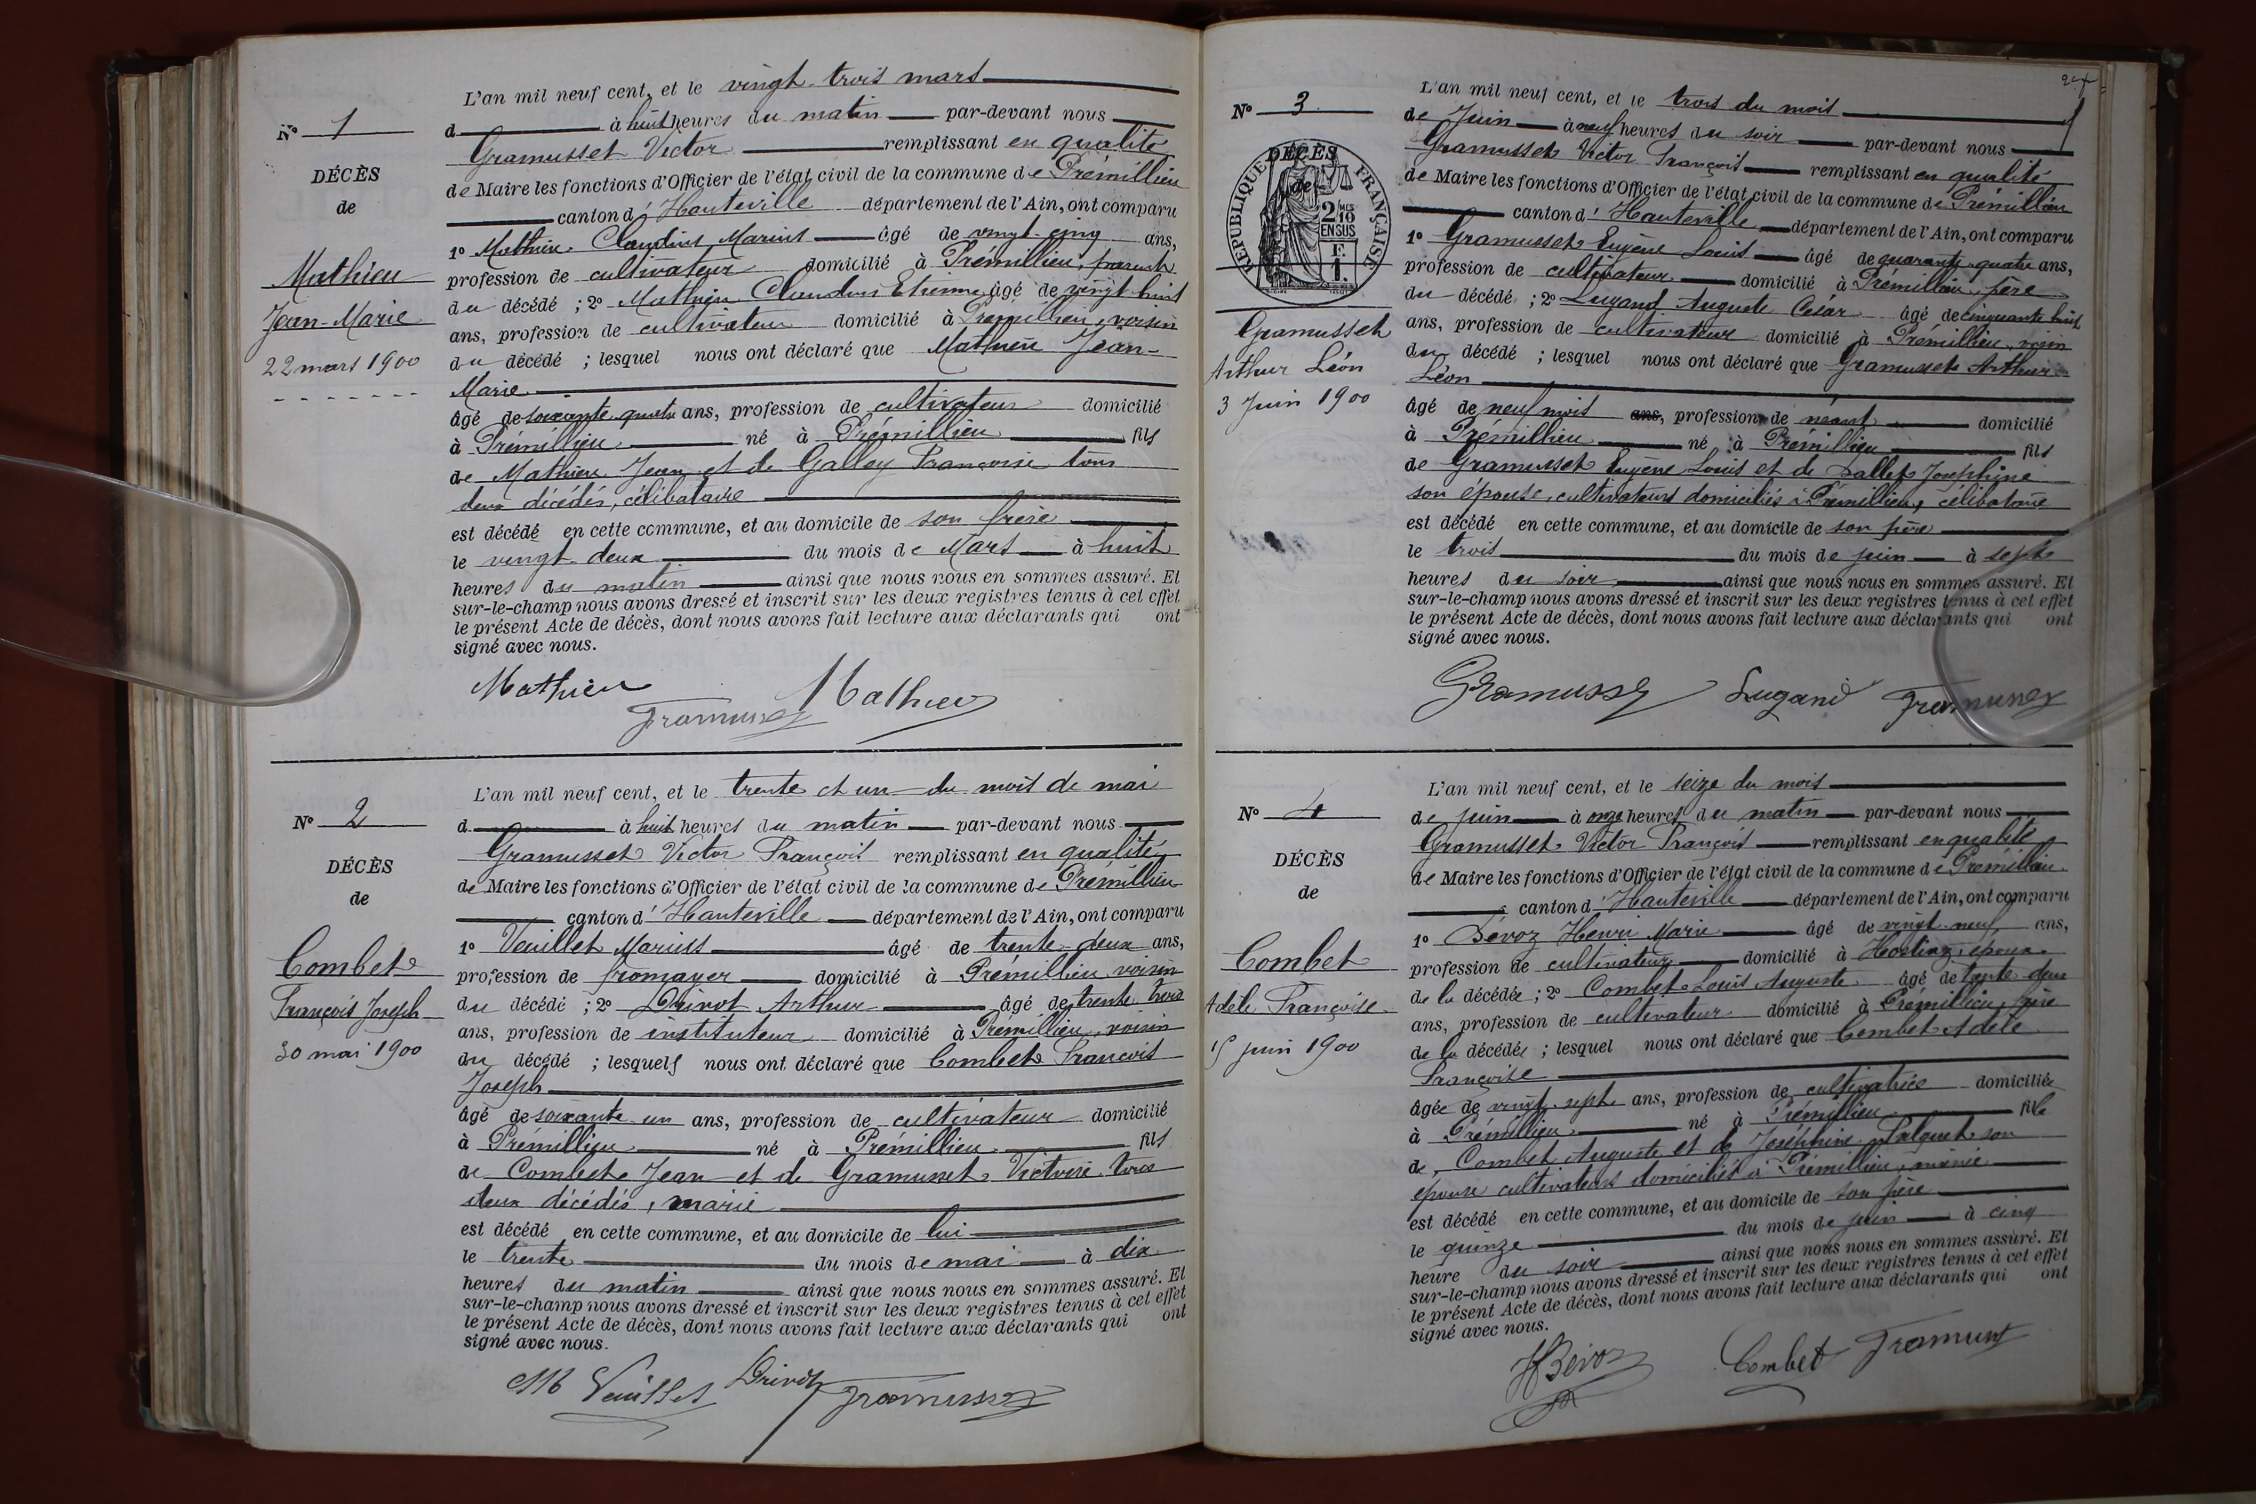 L'an mil neuf cent, et le vingt trois mars
d à huit heures du matin par-devant nous
Gramusset Victor remplissant en qualité
de Maire les fonctions d'Officier de l'état civil de la commune de Prémillieu
canton d'Hauteville département de l'Ain, ont comparu
1º Mathieu Claudius Marius âgé de vingt-cinq ans,
profession de cultivateur domicilié à Prémillieu, parent
du décédé ; 2º Mathieu Claudius Etienne âgé de vingt huit
ans, profession de cultivateur domicilié à Prémillieu, voisin
du décédé ; lesquel nous ont déclaré que Mathieu Jean-
Marie
âgé de soixante quatre ans, profession de cultivateur domicilié
à Prémillieu né à Prémillieu fils
de Mathieu Jean et de Gallay Françoise tous
deux décédés, célibataire
est décédé en cette commune, et au domicile de son frère
le vingt deux du mois de Mars à huit
heures du matin ainsi que nous nous en sommes assuré. Et
sur-le-champ nous avons dressé et inscrit sur les deux registres tenus à cet effet
le présent Acte de décès, dont nous avons fait lecture aux déclarants qui ont
signé avec nous.
Mathieu Gramusset Mathieu
Nº 1
DÉCÈS
de
Mathieu
Jean-Marie
22 mars 1900
L'an mil neuf cent, et le trente et un du mois de mai
d à huit heures du matin par-devant nous
Gramusset Victor François remplissant en qualité
de Maire les fonctions d'Officier de l'état civil de la commune de Prémillieu
canton d'Hauteville département de l'Ain, ont comparu
1º Veuillet Marius âgé de trente-deux ans,
profession de fromager domicilié à Prémillieu voisin
du décédé ; 2º Drivot Arthur âgé de trente trois
ans, profession de instituteur domicilié à Prémillieu, voisin
du décédé ; lesquels nous ont déclaré que Combet François
Joseph
âgé de soixante un ans, profession de cultivateur domicilié
à Prémillieu né à Prémillieu fils
de Combet Jean et de Gramusset Victoire tous
deux décédés, marié
est décédé en cette commune, et au domicile de lui
le trente du mois de mai à dix
heures du matin ainsi que nous nous en sommes assuré. Et
sur-le-champ nous avons dressé et inscrit sur les deux registres tenus à cet effet
le présent Acte de décès, dont nous avons fait lecture aux déclarants qui ont
signé avec nous.
M Veuillet Drivot Gramusset
Nº 2
DÉCÈS
de
Combet
François Joseph
30 mai 1900
L'an mil neuf cent, et le trois du mois
de Juin à neuf heures du soir par-devant nous
Gramusset Victor François remplissant en qualité
de Maire les fonctions d'Officier de l'état civil de la commune de Prémillieu
canton d'Hauteville département de l'Ain, ont comparu
1º Gramusset Eugène Louis âgé de quarante-quatre ans,
profession de cultivateur domicilié à Prémillieu, père
du décédé ; 2º Lugand Auguste César âgé de cinquante huit
ans, profession de cultivateur domicilié à Prémillieu, voisin
du décédé ; lesquel nous ont déclaré que Gramusset Arthur
Léon
âgé de neuf mois ans, profession de néant domicilié
à Prémillieu né à Prémillieu fils
de Gramusset Eugène Louis et de Dallet Joséphine
son épouse, cultivateurs domiciliés à Prémillieu, célibataire
est décédé en cette commune, et au domicile de son père
le trois du mois de juin à sept
heures du soir ainsi que nous nous en sommes assuré. Et
sur-le-champ nous avons dressé et inscrit sur les deux registres tenus à cet effet
le présent Acte de décès, dont nous avons fait lecture aux déclarants qui ont
signé avec nous.
Gramusset Lugand Gramusset
Nº 3
DÉCÈS
de
RÉPUBLIQUE FRANÇAISE
2 MES
10
EN SUS
F.
1.
Gramusset
Arthur Léon
3 Juin 1900
L'an mil neuf cent, et le seize du mois
de juin à onze heures du matin par-devant nous
Gramusset Victor François remplissant en qualité
de Maire les fonctions d'Officier de l'état civil de la commune de Prémillieu
canton d'Hauteville département de l'Ain, ont comparu
1º Bévoz Henri Marie âgé de vingt-neuf ans,
profession de cultivateur domicilié à Hostiaz, époux
de la décédée ; 2º Combet Louis Auguste âgé de trente deux
ans, profession de cultivateur domicilié à Prémillieu, frère
de la décédée ; lesquel nous ont déclaré que Combet Adèle
Françoise
âgée de vingt-sept ans, profession de cultivatrice domiciliée
à Prémillieu né à Prémillieu fille
de Combet Auguste et de Joséphine son
épouse cultivateurs domiciliés à Prémillieu, mariée
est décédé en cette commune, et au domicile de son père
le quinze du mois de juin à cinq
heure du soir ainsi que nous nous en sommes assuré. Et
sur-le-champ nous avons dressé et inscrit sur les deux registres tenus à cet effet
le présent Acte de décès, dont nous avons fait lecture aux déclarants qui ont
signé avec nous.
HBévoz Combet Gramusset
Nº 4
DÉCÈS
de
Combet
Adèle Françoise
15 juin 1900